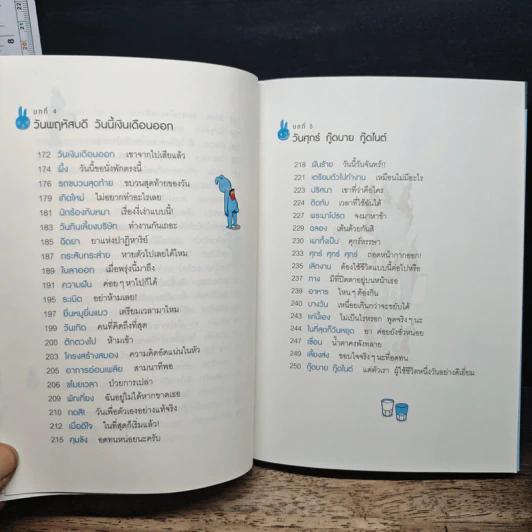 บทที่ 4
วันพฤหัสบดี วันนี้เงินเดือนออก
172 วันเงินเดือนออก เขาจากไปเสียแล้ว
174 ผึ้ง วันนี้ขอนั่งพักตรงนี้
176 รถขบวนสุดท้าย ขบวนสุดท้ายของวัน
179 เกิดใหม่ ไม่อยากทำอะไรเลย
181 นักร้องกับหมา เรื่องงี่เง่าแบบนี้!
183 วันกินเลี้ยงบริษัท ทำงานกันเถอะ
185 ฉีดยา ยาแห่งปาฏิหาริย์
187 กระสับกระส่าย หายตัวไปเลยได้ไหม
189 ใบลาออก เมื่อพรุ่งนี้มาถึง
191 ความฝัน ค่อยๆ หาไปก็ได้
195 ระเบิด อย่าห้ามเลย!
197 ยี่นหมูยื่นแมว เตรียมเวลามาไหม
199 วันเกิด คนที่คิดถึงที่สุด
200 ตักตวงไป ห้ามเข้า
203 โครงสร้างสมอง ความคิดอัดแน่นในหัว
205 อาการอ่อนเพลีย สามนาทีพอ
206 ขโมยเวลา ป่วยการเปล่า
209 พักเที่ยง ฉันอยู่ไม่ได้หากขาดเธอ
210 กดสิ! วันเพื่อตัวเองอย่างแท้จริง
212 เมื่อดีใจ ในที่สุดก็เริ่มแล้ว!
215 คุมขัง อดทนหน่อยนะครับ
บทที่ 5
วันศุกร์ กู๊ดบาย กู๊ดไนต์
218 ฝันร้าย วันนี้วันจันทร์!
221 เตรียมตัวไปทำงาน เหมือนไม่มีอะไร
223 ปริศนา เขาที่ว่าคือใคร
224 ติดกับ เวลาที่ใช้ฉันได้
227 พระมาโปรด จงมาหาข้า
229 ฉลอง เต้นด้วยกันสิ
230 เผาทั้งเป็น ศุกร์หรรษา
233 ศุกร์ ศุกร์ ศุกร์ ถอดหน้ากากออก!
235 เลิกงาน ต้องใช้ชีวิตแบบนี้ต่อไปหรือ
237 ทาง มีที่ปิดตาอยู่บนหน้าเธอ
239 อาหาร ไหนๆ ต้องกิน
240 บางวัน เหนื่อยเกินกว่าจะขยับได้
243 แค่นี้เอง ไม่เป็นไรหรอก พูดจริงๆ นะ
244 ในที่สุดก็วันหยุด อา ค่อยยังชั่วหน่อย
247 เขื่อน น้ำตาคงพังทลาย
249 เลี้ยงส่ง ขอบใจจริงๆ นะที่อดทน
250 กู๊ดบาย กู๊ดไนต์ แด่ตัวเรา ผู้ใช้ชีวิตหนึ่งวันอย่างดีเยี่ยม